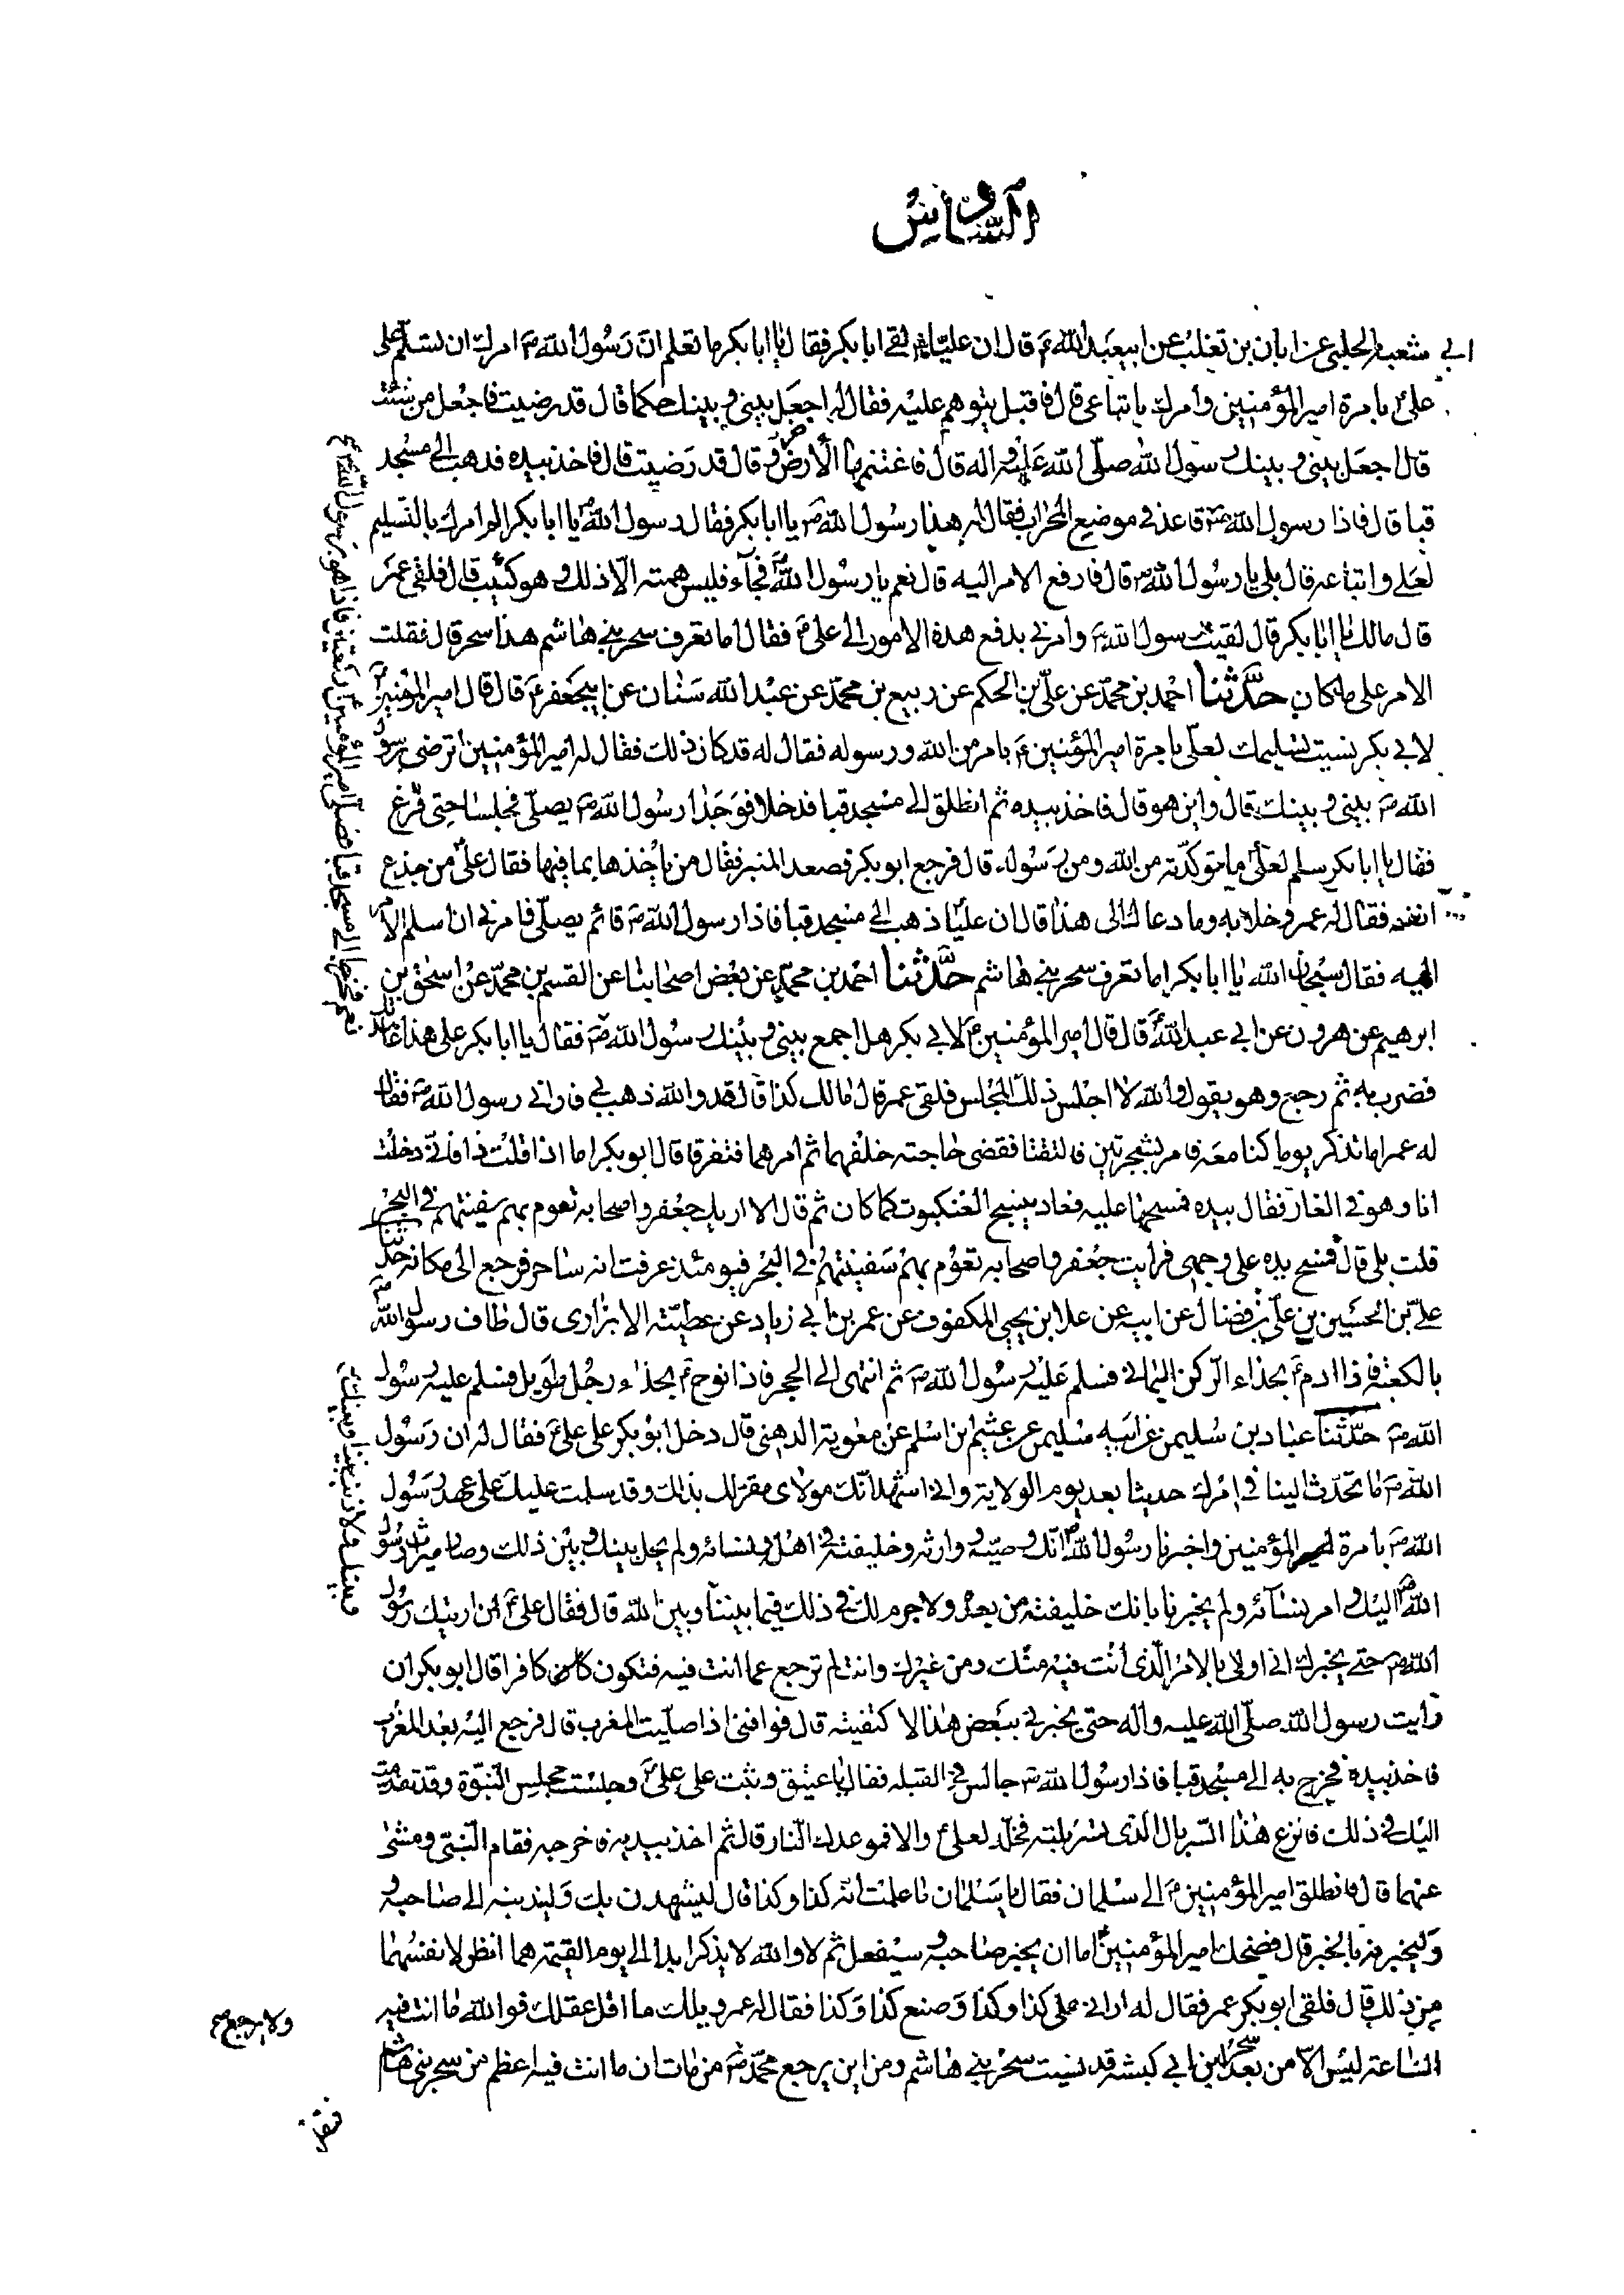 السادس
ابى شعبة الحلبى عن ابان بن تغلب عن ابيعبد الله ع قال ان عليّا ع لقى ابا بكر فقال يا ابا بكر ما تعلم انّ رسول الله ص امرك ان تسلّم على
علىّ ع بامرة امير المؤمنين وامرك باتباعى قال فاقبل يتوهم عليه فقال له اجعل بينى وبينك حكما قال قد رضيت فاجعل من شئت
قال اجعل بينى وبينك رسول الله صلّى الله عليه واله قال فاغتنمها الأرض وقال قد رضيت قال فاخذ بيده فذهب الى مسجد
قبا قال فاذا رسول الله ص قاعد فى موضع المحراب فقال له هذا رسول الله ص يا ابا بكر فقال رسول الله ص يا ابا بكر الم امرك بالتسليم
لعلى واتباعه قال بلى يا رسول الله ص قال فارفع الامر اليه قال نعم يا رسول الله ص فجآء فليس همته الّا ذلك وهو كئيب قال فلقى عمر
قال مالك يا ابا بكر قال لقيت رسول الله ص وامرنى بدفع هذه الامور الى على ع فقال اما تعرف سحر بنى هاشم هذا سحر قال فقلت
الامر على ما كان حدّثنا احمد بن محمّد عن علىّ بن الحكم عن ربيع بن محمّد عن عبد الله سنان عن ابيجعفر ع قال قال امير المؤمنين ع
لابى بكر نسيت تسليمك لعلى بامرة امير المؤمنين ع بامر من الله ورسوله فقال له قد كان ذلك فقال له امير المؤمنين اترضى برسول
الله ص بينى وبينك فقال واين هو قال فاخذ بيده ثم انطلق الى مسجد قبا فدخلا فوجدا رسول الله ص يصلّى فجلسا حتى فرغ
فقال يا ابا بكر سلم لعلى ع ما توكدته من الله ومن رسوله قال فرجع ابو بكر فصعد المنبر فقال من ياخذها بما فيها فقال علىّ ع من جذع
انفه فقال له عمر وخلا به وما دعاك الى هذا قال ان عليّا ذهب الى مسجد قبا فاذا رسول الله ص قائم يصلّى فامرنى ان اسلم الامر
اليه فقال سبحان الله يا ابا بكر اما تعرف سحر بنى هاشم حدّثنا احمد بن محمّد عن بعض اصحابنا عن القسم بن محمّد عن اسحق بن
ابرهيم عن هرون عن ابى عبد الله ع قال قال امير المؤمنين ع لابى بكر هل اجمع بينى وبينك رسول الله ص فقال يا ابا بكر على هذا عاهدتك
فضرب به ثم رجع وهو يقول والله لا اجلس ذلك المجلس فلقى عمر قال مالك كذا قال قد والله ذهب بى فارانى رسول الله ص فقال
له عمر اما تذكر يوما كنا معه فامر بشجرتين فالتقتا فقضى حاجته خلفهما ثم امرهما فتفرقا قال ابو بكر اما اذا قلت ذا فانى دخلت
انا وهو فى الغار فقال بيده فمسحها عليه فعاد ينسج العنكبوت كما كان ثم قال الا اريك جعفر واصحابه تعوم بهم سفينتهم فى البحر
قلت بلى قال فمسح يده على وجهى فرايت جعفر واصحابه تعوم بهم سفينتهم فى البحر فيومئذ عرفت انه ساحر فرجع الى مكانه حدثنا
علىّ بن الحسين بن علىّ بن فضال عن ابيه عن علا بن يحيى المكفوف عن عمر بن ابى زياد عن عطيّة الابزارى قال طاف رسول الله ص
بالكعبة فاذا ادم ع بحذاء الركن اليمانى فسلم عليه رسول الله ص ثم انتهى الى الحجر فاذا نوح ع بحذاء رجل طويل فسلم عليه رسول
الله ص حدّثنا عباد بن سليمن عن ابيه سليمن عن عثيم بن اسلم عن معوية الدهنى قال دخل ابو بكر على علىّ ع فقال له ان رسول
الله ص ما تحدّث الينا فى امرك حديثا بعد يوم الولاية وانى اشهد انّك مولاى مقر لك بذلك وقد سلمت عليك على عهد رسول
الله ص بامرة امير المؤمنين واخبرنا رسول الله ص انّك وصيّه ووارثه وخليفته فى اهله ونسائه ولم يحل بينك وبين ذلك وصار ميراث رسول
الله ص اليك وامر نسآئه ولم يخبرنا بانك خليفته من بعده ولا جرم لك فى ذلك فيما بيننا وبين الله قال فقال علىّ ع ان اريتك رسول
الله ص حتى يخبرك انى اولى بالامر الّذى انت فيه منك ومن غيرك وان لم ترجع عما انت فيه فتكون كافرا قال ابو بكر ان
رايت رسول الله صلّى الله عليه واله حتى يخبرنى ببعض هذا لاكتفيته قال فوافنى اذا صلّيت المغرب قال فرجع اليه بعد المغرب
فاخذ بيده فخرج به الى مسجد قبا فاذا رسول الله ص جالس فى القبلة فقال يا عتيق وثبت على علىّ ع وجلست مجلس النبوّة وقد تقدمت
اليك فى ذلك فانزع هذا السربال الّذى تسربلته فخلّه لعلى ع والا فموعدك النار قال ثم اخذ بيديه فاخرجه فقام النّبىّ ومشى
عنهما قال فانطلق امير المؤمنين ع الى سلمان فقال يا سلمان ما علمت انه كذا وكذا قال ليشهدن بك وليندبنه الى صاحبه و
وليخبرنه بالخبر قال فضحك امير المؤمنين ع اما ان يخبر صاحبه وسيفعل ثم لا والله لا يذكر ابدا الى يوم القيمة هما انظر لانفسهما
من ذلك قال فلقى ابو بكر عمر فقال له ارانى على كذا وكذا وصنع كذا وكذا فقال له عمر ويلك ما اقل عقلك فوالله ما انت فيه
الساعة ليس الّا من بعض سحر ابن ابى كبشة قد نسيت سحر بنى هاشم ومن اين يرجع محمّد ص من مات ان ما انت فيه اعظم من سحر بنى هاشم
نعم فخرجا الى مسجد قبا فصلّى امير المؤمنين ع ركعتين فاذا هو برسول الله ص
ولا يرجع صح